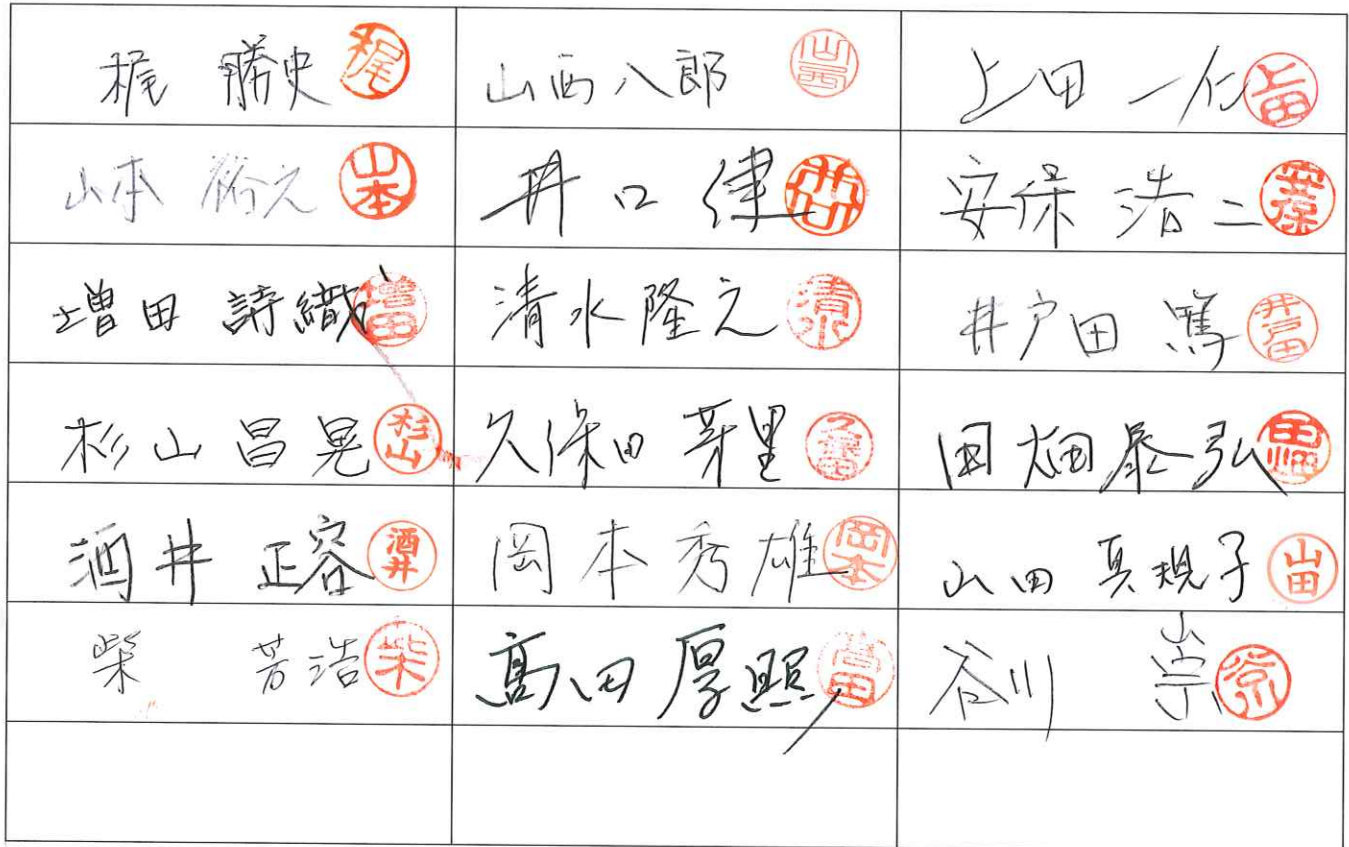 梶 勝史 梶 山西八郎 山西 上田 一仁 上田
山本 裕之 山本 井口 律 井口 安保 浩二 安保
増田 詩織 増田 清水隆之 清水 井戸田 篤 井戸田
杉山 昌晃 杉山 久保田 芽里 久保田 田畑泰弘 田畑
酒井 正容 酒井 岡本秀雄 岡本 山田 真規子 山田
柴 芳浩 柴 髙田厚照 髙田 谷川 崇 谷川